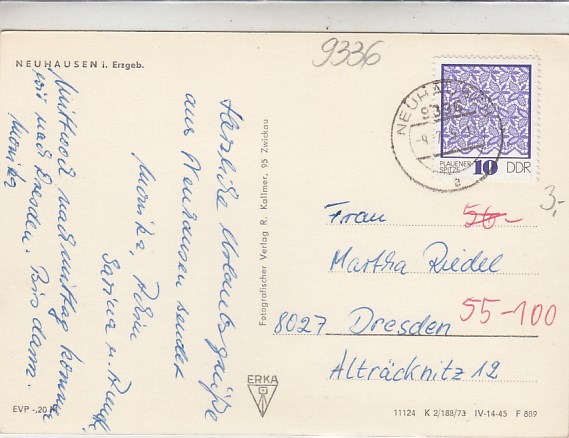 9336
NEUHAUSEN i. Erzgeb.
Herzliche Urlaubsgrüße
aus Neuhausen senden
Monika, Robin
Sabine u.
Mittwoch nachmittag kommen
wir nach Dresden. Bis dann.
Monika
EVP -,20 M
Fotografischer Verlag R. Kallmer, 95 Zwickau
ERKA
NEUHAUSEN
9336
a
PLAUENER
SPITZE
10 DDR
3,-
Frau
56,-
Martha Riedel
55-100
8027 Dresden
Alträcknitz 12
11124 K 2/188/73 IV-14-45 F 889